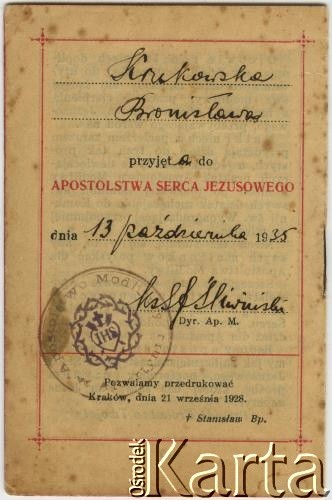 Krukowska
Bronisława
przyjęta do
APOSTOLSTWA SERCA JEZUSOWEGO
dnia 13 października 1935
Ks Śliwiński
Dyr. Ap. M.
Apostolstwo Modlitwy
IHS
Pozwalamy przedrukować
Kraków, dnia 21 września 1928.
† Stanisław Bp.
Ośrodek
Karta